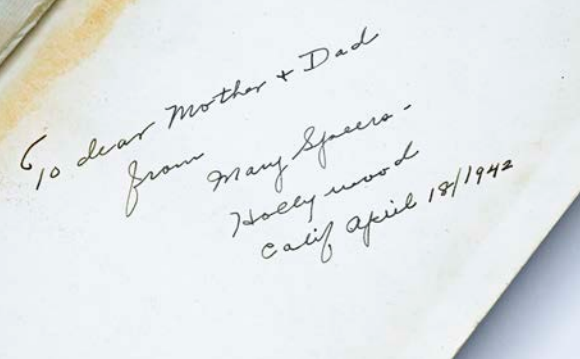 To dear Mother + Dad
from
Mary Speers -
Hollywood
Calif April 18/1942